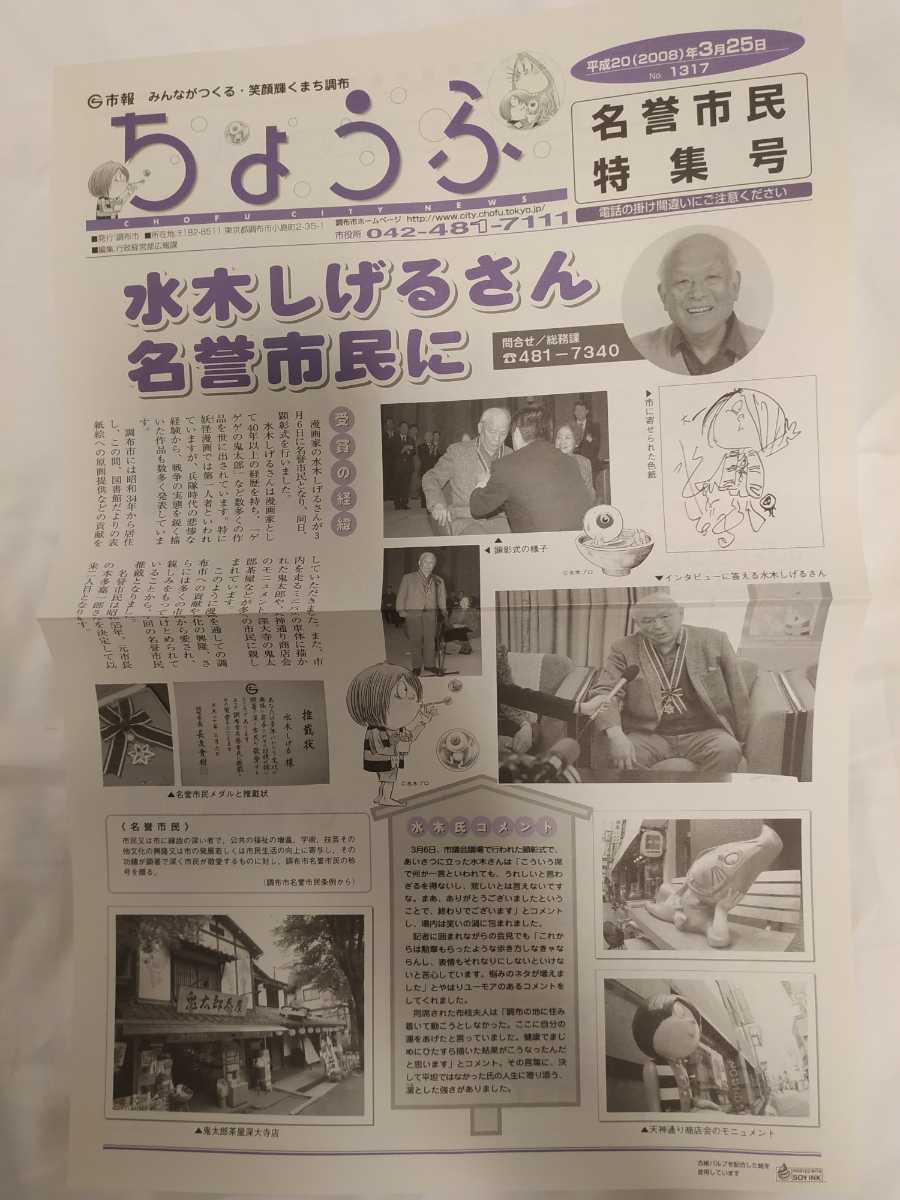 市報 みんながつくる・笑顔輝くまち調布
ちょうふ
CHOFU CITY NEWS
平成20(2008)年3月25日
No. 1317
名誉市民
特集号
電話の掛け間違いにご注意ください
■発行 調布市 ■所在地 〒182-8511 東京都調布市小島町2-35-1
■編集 行政経営部広報課
調布市ホームページ http://www.city.chofu.tokyo.jp/
市役所 042-481-7111
水木しげるさん
名誉市民に
問合せ/総務課
☎481-7340
受賞の経緯
漫画家の水木しげるさんが3
月6日に名誉市民となり、同日、
顕彰式を行いました。
水木しげるさんは漫画家とし
て40年以上の経歴を持ち、「ゲ
ゲゲの鬼太郎」など数多くの作
品を世に出されています。特に
妖怪漫画では第一人者といわれ
ていますが、兵隊時代の悲惨な
経験から、戦争の実態を鋭く描
いた作品も数多く発表していま
す。
調布市には昭和34年から居住
し、この間、図書館だよりの表
紙絵への原画提供などの貢献を
していただきました。また、市
内を走るミニバスの車体に描か
れた鬼太郎や、天神通り商店会
のモニュメント、深大寺の鬼太
郎茶屋などが多の市民に親し
まれています。
このように漫を通しての調
布市への貢献や化の興隆、さ
らには多くの市から愛され、
親しみをもってけとめられて
いることから、回の名誉市民
推戴となりまし
名誉市民は昭55年、元市長
の本多嘉一郎さを決定して以
来二人目となりす。
▶市に寄せられた色紙
◀▲顕彰式の様子
©水木プロ
▼インタビューに答える水木しげるさん
推戴状
水木しげる 様
調布市長 長友貴樹
▲名誉市民メダルと推戴状
©水木プロ
〈名誉市民〉
市民又は市に縁故の深い者で、公共の福祉の増進、学術、技芸その
他文化の興隆又は市の発展若しくは市民生活の向上に寄与し、その
功績が顕著で深く市民が敬愛するものに対し、調布市名誉市民の称
号を贈る。
(調布市名誉市民条例から)
水木氏コメント
3月6日、市議会議場で行われた顕彰式で、
あいさつに立った水木さんは「こういう席
で何か一言といわれても、うれしいと言わ
ざるを得ないし、悲しいとは言えないです
な。まあ、ありがとうございましたという
ことで、終わりでございます」とコメント
し、場内は笑いの渦に包まれました。
記者に囲まれながらの会見でも「これか
らは勲章もらったような歩き方しなきゃな
らんし、表情もそれなりにしないといけな
いと苦心しています。悩みのネタが増えま
した」とやはりユーモアのあるコメントを
してくれました。
同席された布枝夫人は「調布の地に住み
着いて動こうとしなかった。ここに自分の
運をあげたと言っていました。健康でまじ
めにひたすら描いた結果がこうなったんだ
と思います」とコメント。その言葉に、決
して平坦ではなかった氏の人生に寄り添う、
凛とした強さがありました。
鬼太郎茶屋
▲鬼太郎茶屋深大寺店
▲天神通り商店会のモニュメント
古紙パルプを配合した紙を
使用しています
PRINTED WITH
SOY INK